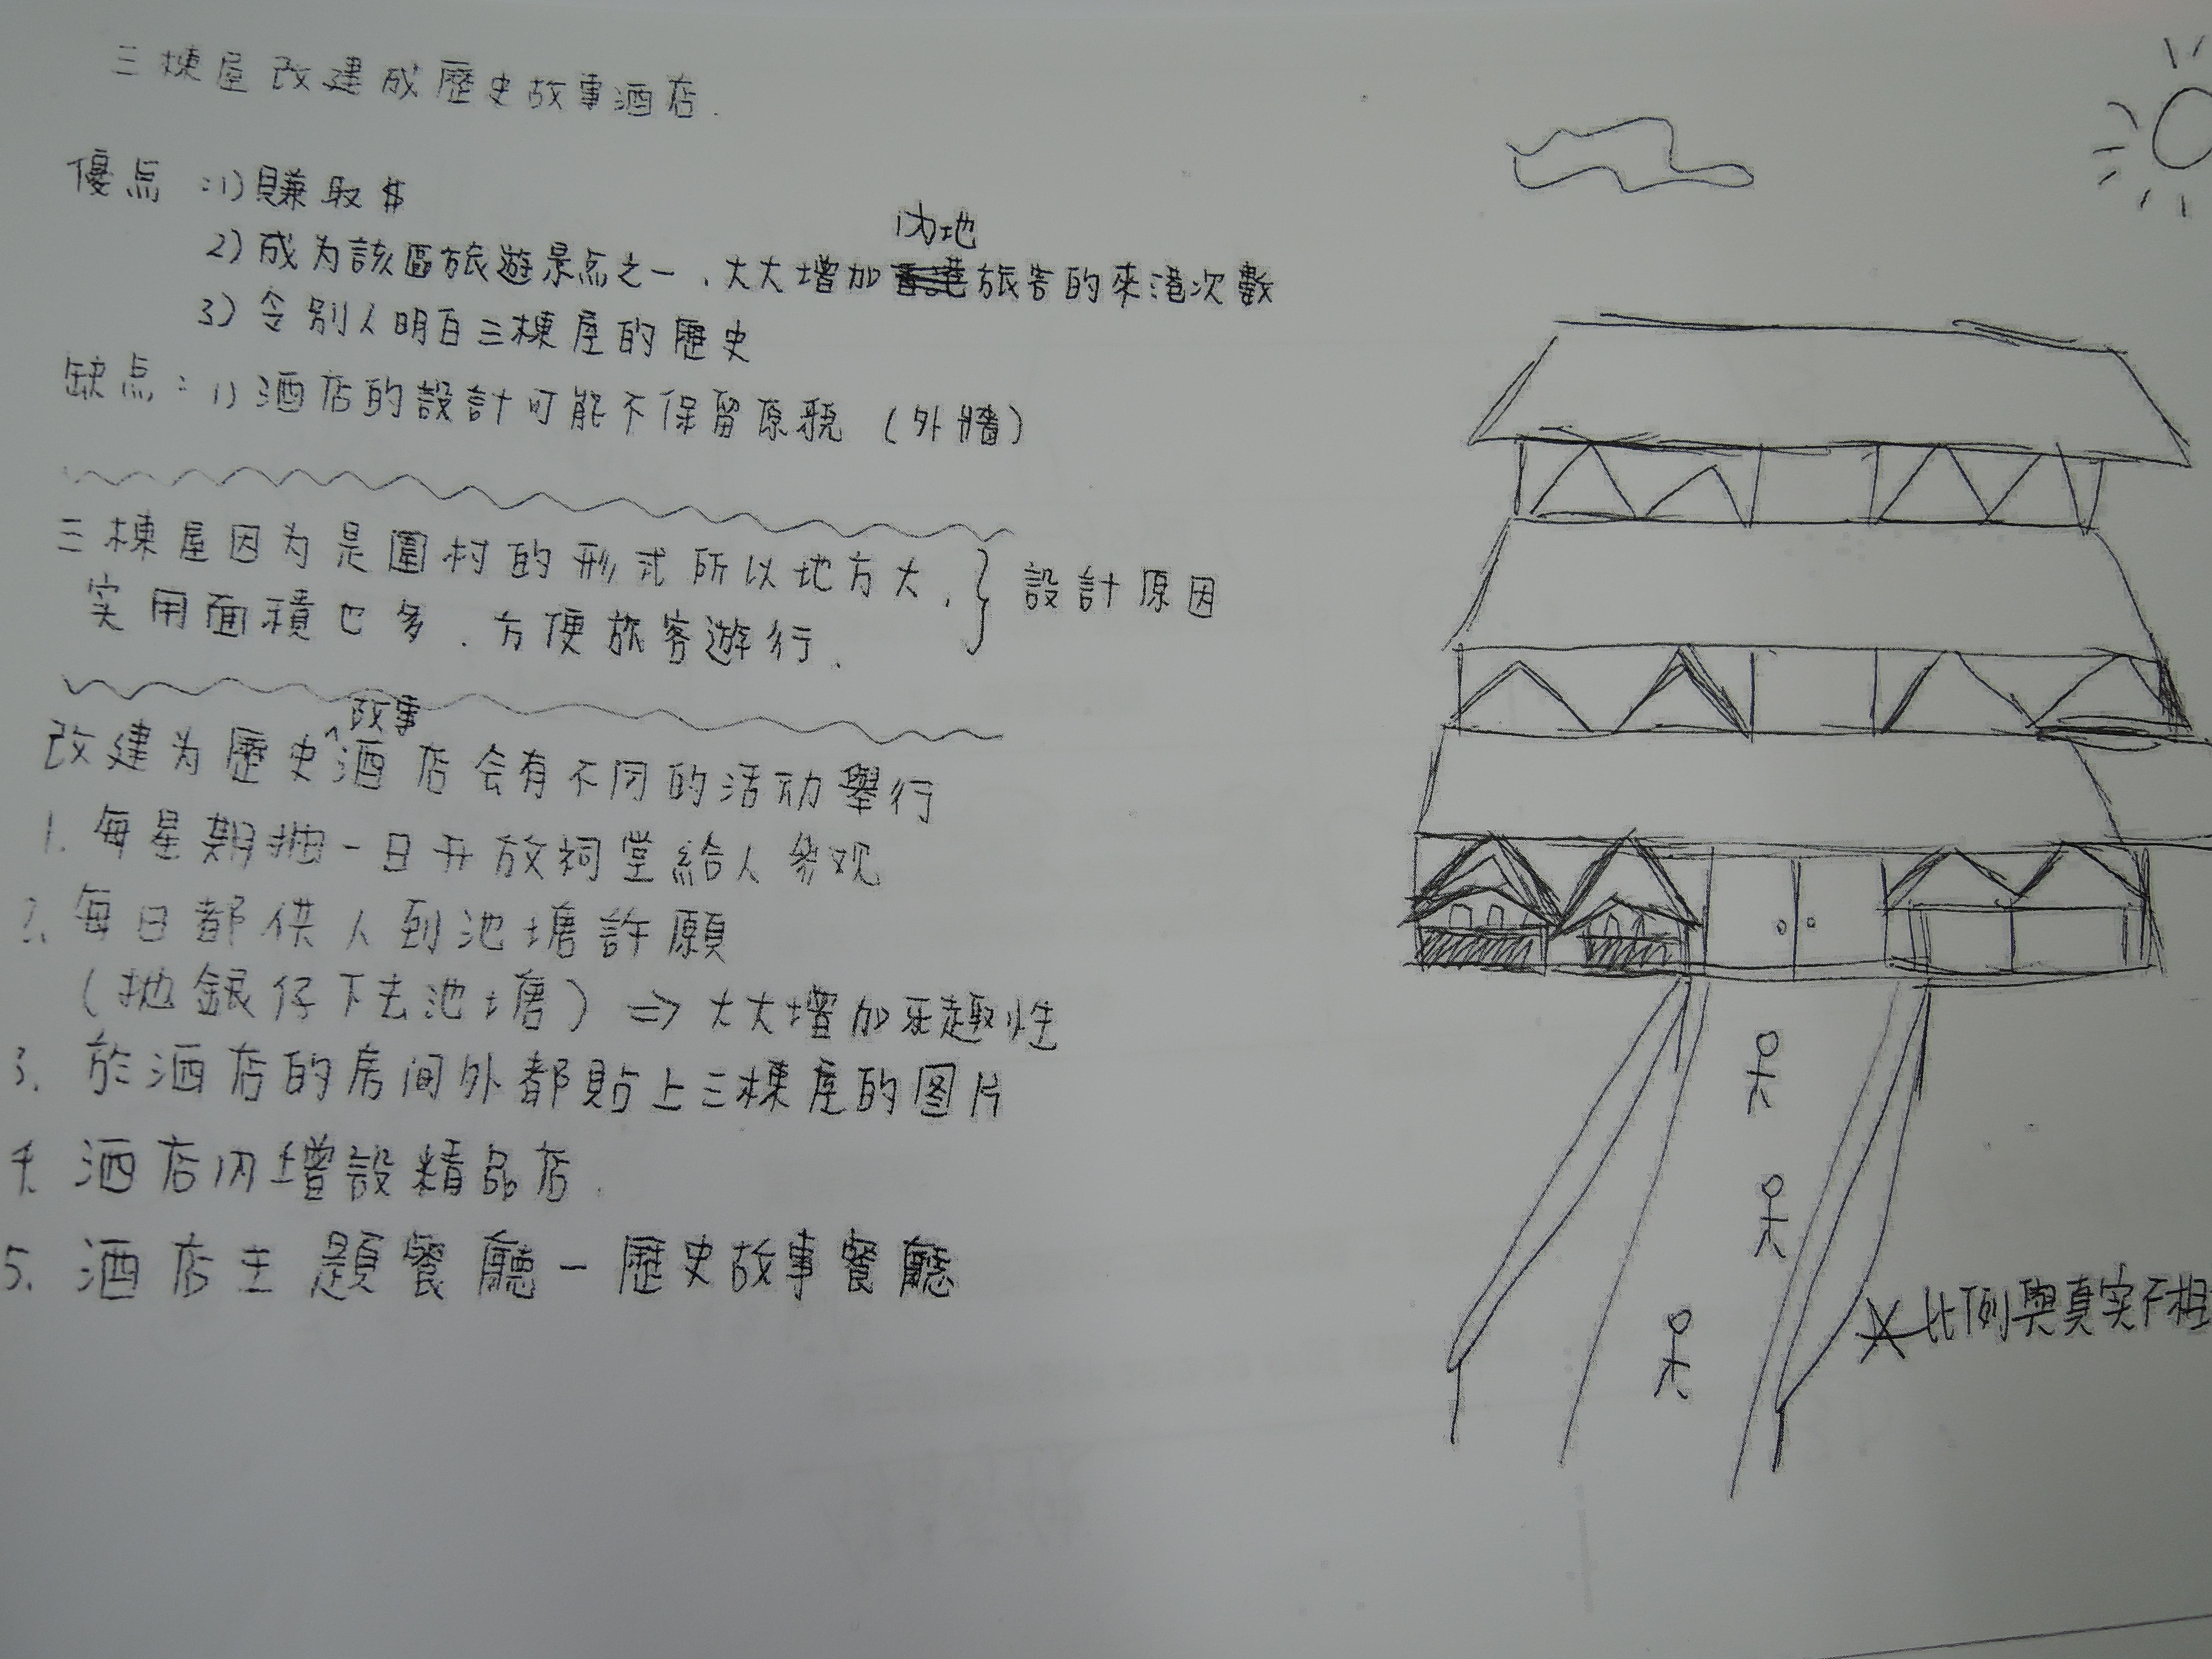 三棟屋改建成歷史故事酒店.
優点:1)賺取$
內地
2)成为該區旅遊景点之一,大大增加旅客的來港次數
3)令別人明白三棟屋的歷史
缺点:1)酒店的設計可能不保留原貌(外牆)
三棟屋因为是圍村的形式所以地方大,
設計原因
实用面積也多.方便旅客遊行.
故事
改建为歷史酒店会有不同的活动舉行
1.每星期抽一日开放祠堂給人參观
2.每日都供人到池塘許願
(拋銀仔下去池塘)⇒大大增加趣性
3.於酒店的房间外都貼上三棟屋的图片
4.酒店內增設精品店.
5.酒店主題餐廳-歷史故事餐廳
比例與真实不相